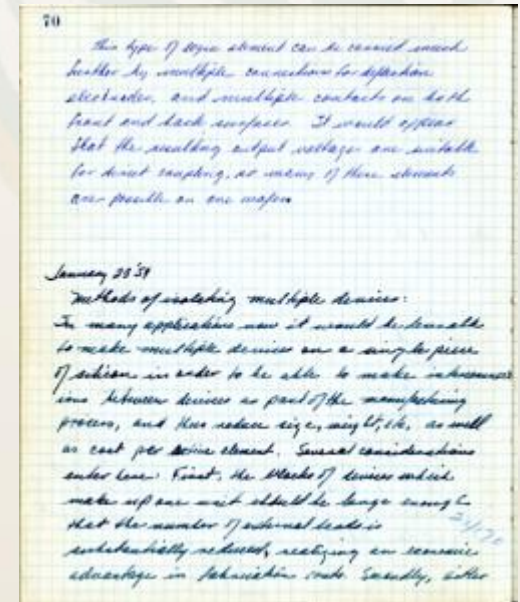 70
This type of logic element can be carried much
further by multiple connections for deflection
electrodes, and multiple contacts on both
front and back surfaces. It would appear
that the resulting output voltages are suitable
for direct coupling, so many of these elements
are possible on one wafer.
January 23 '59
Methods of isolating multiple devices:
In many applications now it would be desirable
to make multiple devices on a single piece
of silicon in order to be able to make interconnect
ions between devices as part of the manufacturing
process, and thus reduce size, weight, etc. as well
as cost per active element. Several considerations
enter here. First, the blocks of devices which
make up one unit should be large enough
that the number of external leads is
substantially reduced, realizing an economic
advantage in fabrication costs. Secondly, either